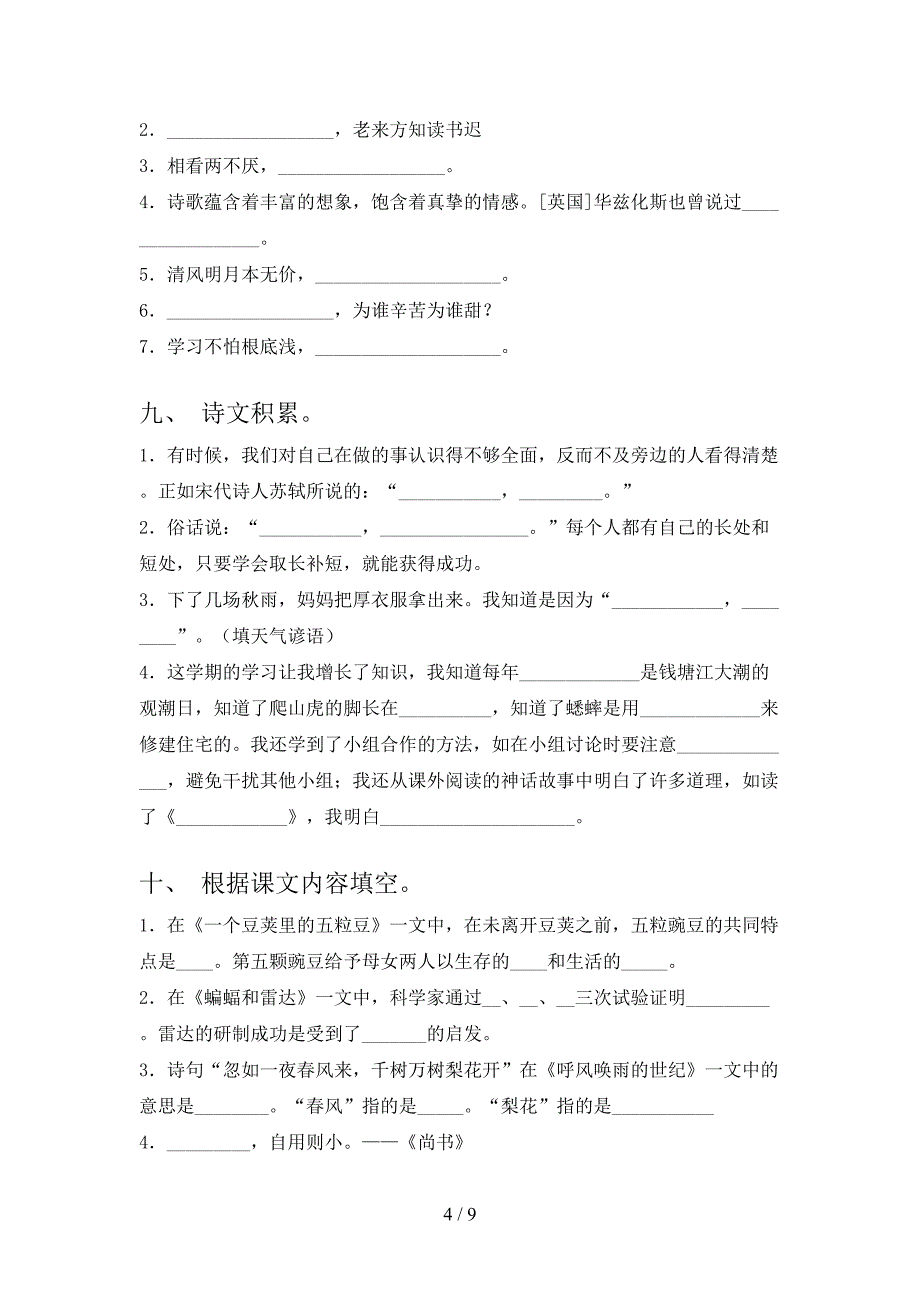 2. __________________，老来方知读书迟
3. 相看两不厌，__________________。
4. 诗歌蕴含着丰富的想象，饱含着真挚的情感。[英国]华兹化斯也曾说过____
_____________。
5. 清风明月本无价，____________________。
6. __________________，为谁辛苦为谁甜？
7. 学习不怕根底浅，____________________。
九、 诗文积累。
1. 有时候，我们对自己在做的事认识得不够全面，反而不及旁边的人看得清楚
。正如宋代诗人苏轼所说的：“___________，_________。”
2. 俗话说：“___________，________________。”每个人都有自己的长处和
短处，只要学会取长补短，就能获得成功。
3. 下了几场秋雨，妈妈把厚衣服拿出来。我知道是因为“____________，____
____”。（填天气谚语）
4. 这学期的学习让我增长了知识，我知道每年_____________是钱塘江大潮的
观潮日，知道了爬山虎的脚长在__________，知道了蟋蟀是用_____________来
修建住宅的。我还学到了小组合作的方法，如在小组讨论时要注意___________
___，避免干扰其他小组；我还从课外阅读的神话故事中明白了许多道理，如读
了《____________》，我明白_____________________。
十、 根据课文内容填空。
1. 在《一个豆荚里的五粒豆》一文中，在未离开豆荚之前，五粒豌豆的共同特
点是____。第五颗豌豆给予母女两人以生存的____和生活的_____。
2. 在《蝙蝠和雷达》一文中，科学家通过__、__、__三次试验证明_________
。雷达的研制成功是受到了_______的启发。
3. 诗句“忽如一夜春风来，千树万树梨花开”在《呼风唤雨的世纪》一文中的
意思是________。“春风”指的是_____。“梨花”指的是___________
4. _________，自用则小。——《尚书》
4 / 9